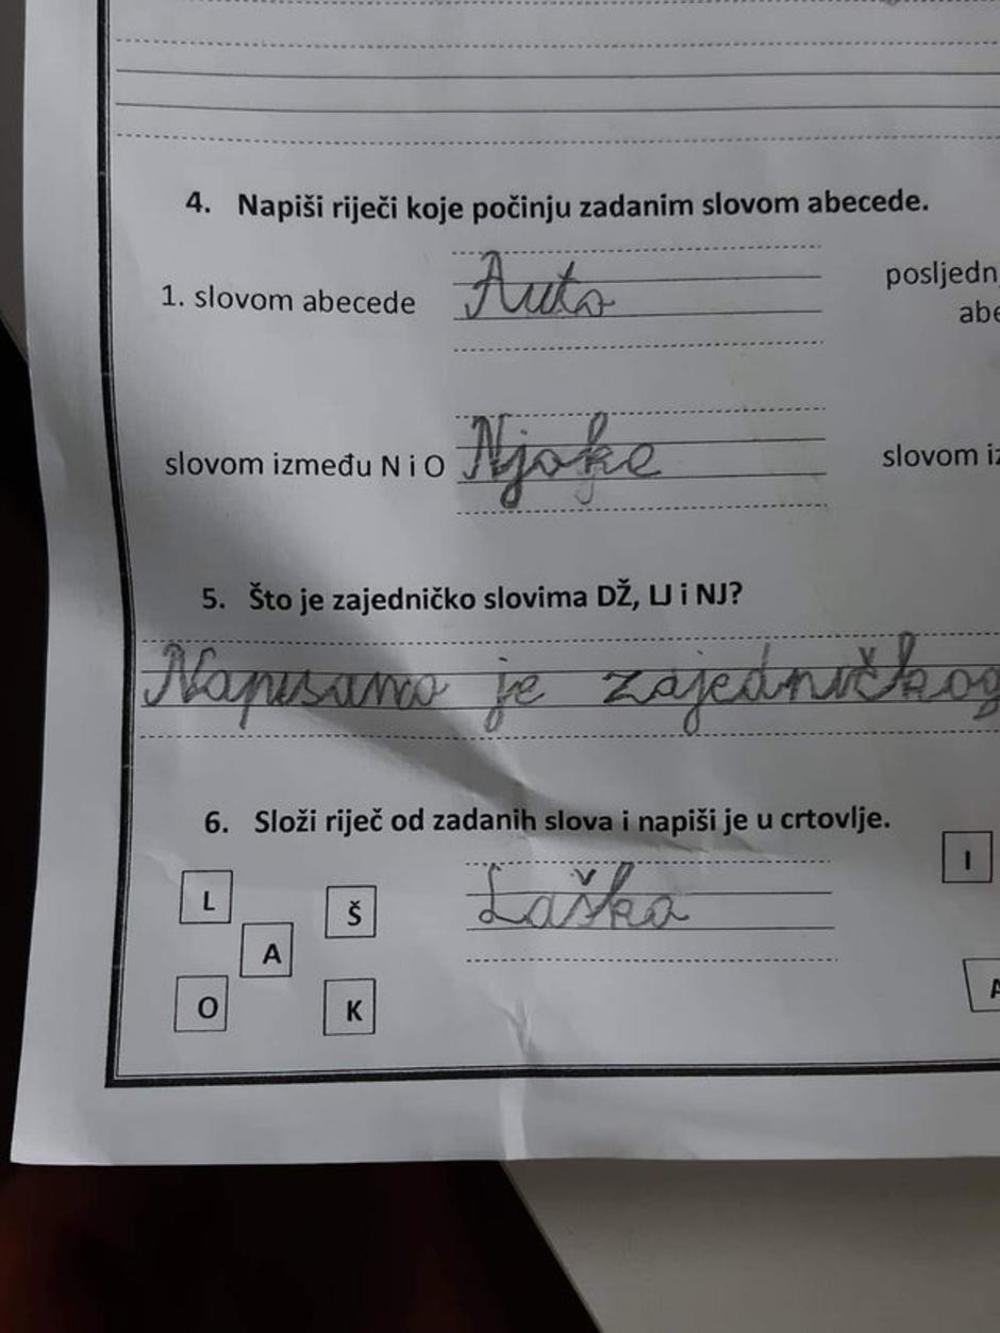 4. Napiši riječi koje počinju zadanim slovom abecede.
1. slovom abecede Auto posljedn
abe
slovom između N i O Njoke slovom iz
5. Što je zajedničko slovima DŽ, LJ i NJ?
Napisano je zajedničkog
6. Složi riječ od zadanih slova i napiši je u crtovlje.
I
L Š Laška
A
A
O K